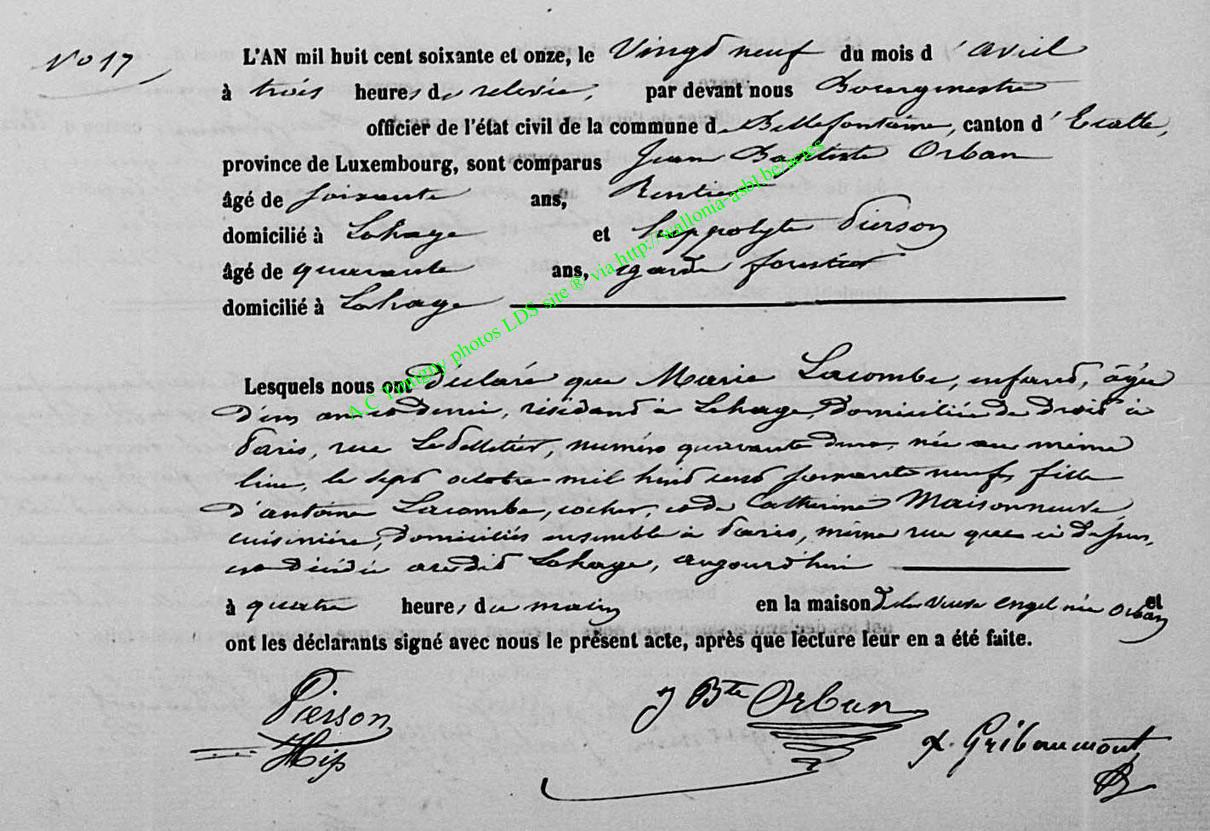 N° 17 L'AN mil huit cent soixante et onze, le Vingt neuf du mois d'avril
à trois heures de relevée, par devant nous Bourgmestre
officier de l'état civil de la commune de Bellefontaine, canton d'Etalle,
province de Luxembourg, sont comparus Jean Baptiste Orban
âgé de soixante ans, Rentier
domicilié à Lahage et Hippolyte Pierson
âgé de quarante ans, garde forestier
domicilié à Lahage
Lesquels nous ont Déclaré que Marie Lacombe, enfant, âgée
d'un an et demi, résidant à Lahage, domiciliée de droit à
Paris, rue Le Pelletier, numéro quarante deux, née au même
lieu, le sept octobre mil huit cent soixante neuf, fille
d'antoine Lacombe, cocher, et de Catherine Maisonneuve
cuisinière, domiciliés ensemble à Paris, même rue que ci dessus,
est décédée audit Lahage, aujourd'hui
à quatre heures du matin en la maison de la veuve Engel née Orban et
ont les déclarants signé avec nous le présent acte, après que lecture leur en a été faite.
Pierson
Hip
J Bte Orban
Gribaumont
A.C photos LDS site ® via http://wallonia-asbl.be/actes